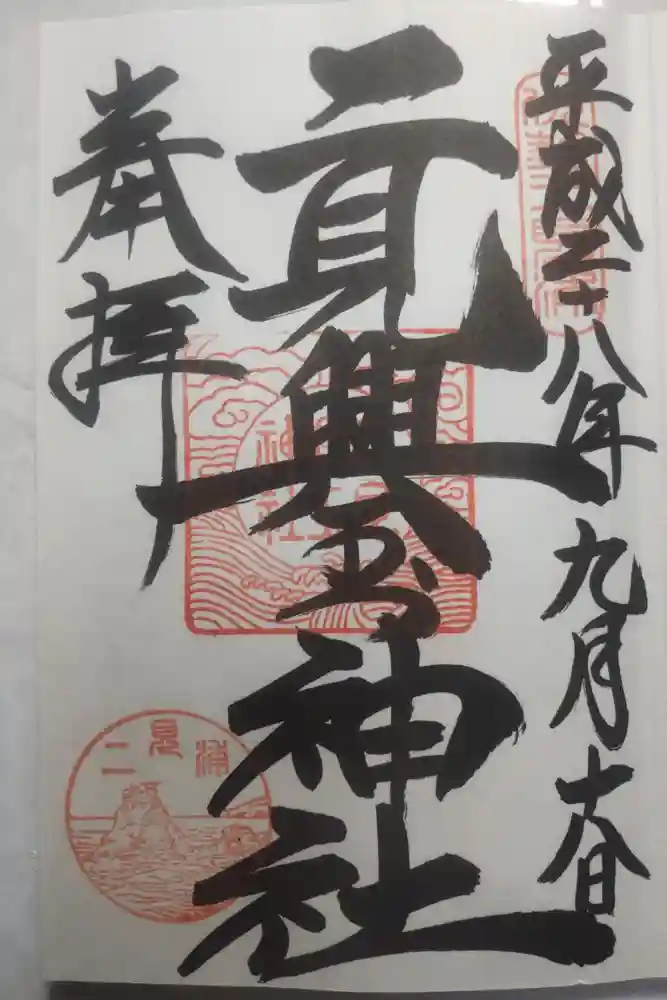 平成二十八年九月十八日
二見興玉神社
奉拝
神社
二見浦